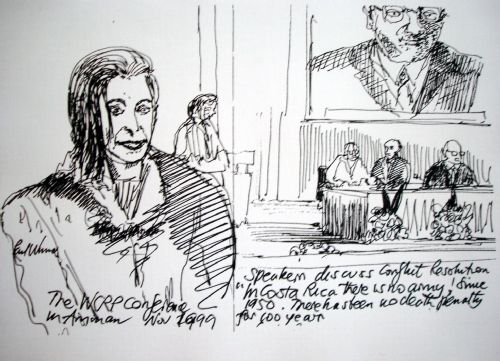 The WCRP Conference
in Amman Nov
Speakers discuss Conflict Resolution
"In Costa Rica there is no army, since
1950. There has been no death penalty
for 100 years